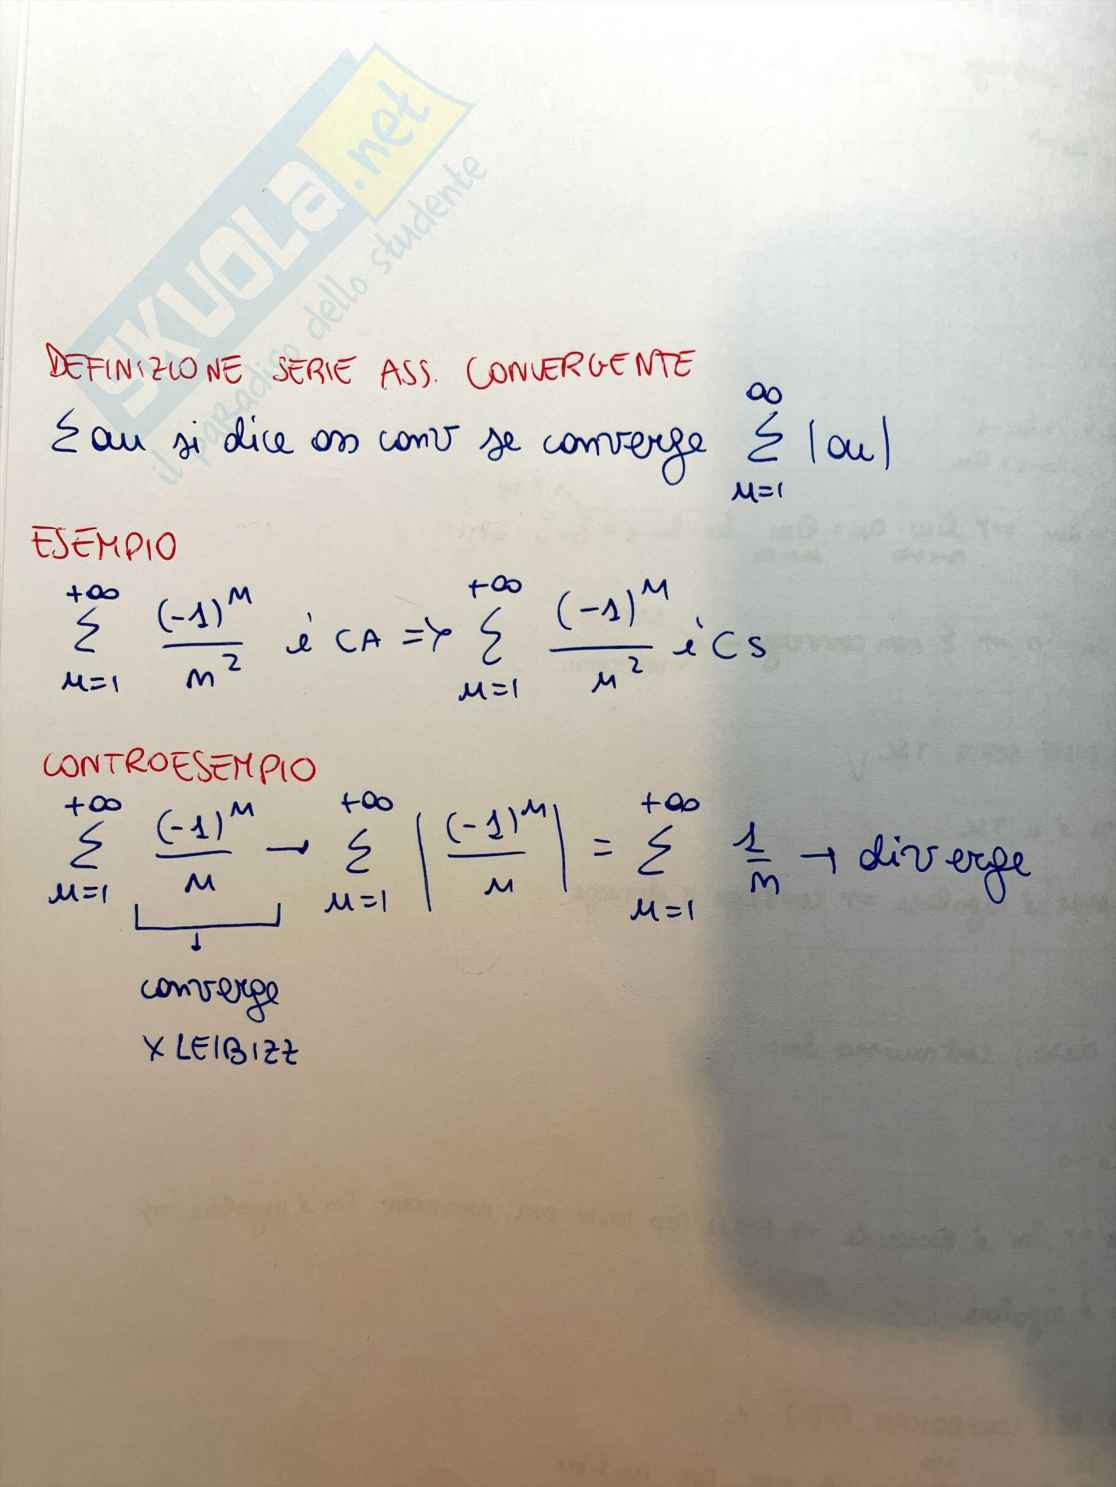 SKUOLA.net
il paradiso dello studente
DEFINIZIONE SERIE ASS. CONVERGENTE
Σ an si dice ass conv se converge ∞ Σ n=1 |an|
ESEMPIO
+∞ Σ n=1 (-1)^n / n^2 è CA => +∞ Σ n=1 (-1)^n / n^2 è CS
CONTROESEMPIO
+∞ Σ n=1 (-1)^n / n → +∞ Σ n=1 |(-1)^n / n| = +∞ Σ n=1 1/n → diverge
↓
converge
X LEIBIZZ